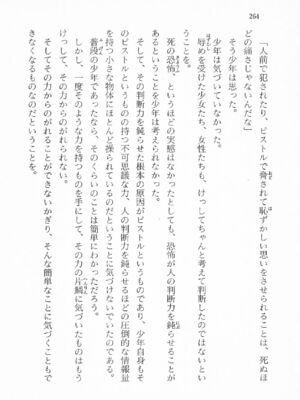 264
「人前で犯されたり、ピストルで脅されて恥ずかしい思いをさせられることは、死ぬほ
どの痛さじゃないんだな」
そう少年は思った。
少年は気づいていなかった。
辱めを受けた少女たち、女性たちも、けっしてちゃんと考えて判断したのではないとい
うことを。
死の恐怖、というほどの実感はなかったとしても、恐怖が人の判断力を鈍らせることが
あるということを少年は考えられなかった。
そして、その判断力を鈍らせた根本の原因がピストルというものであり、少年自身もそ
のピストルというものの持つ不可思議な力、人の判断力を鈍らせるほどの圧倒的な情報量
を持つ小さな物体にほとんど操られているのだということに気づけないでいたのである。
普段の少年であったなら、そのくらいのことは簡単にわかっただろう。
しかし、一度そのような力を持つものを手にして、その力の片鱗に気づいたものはもう
けっして、その力からのがれられない。
そしてその力からのがれることができないかぎり、そんな簡単なことに気づくこともで
きなくなるものなのだということを。